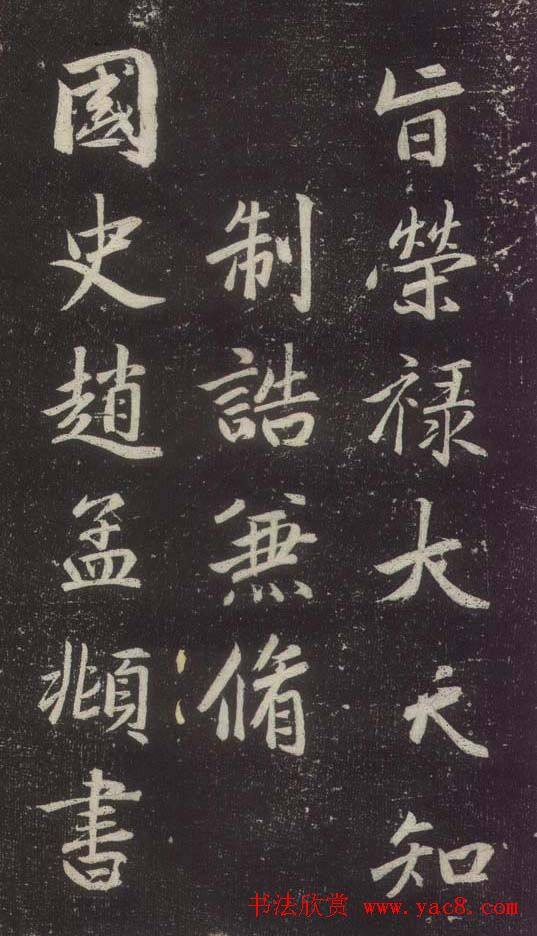 旨榮禄大夫知
制誥兼脩
國史趙孟頫書
书法欣赏 www.yac8.com